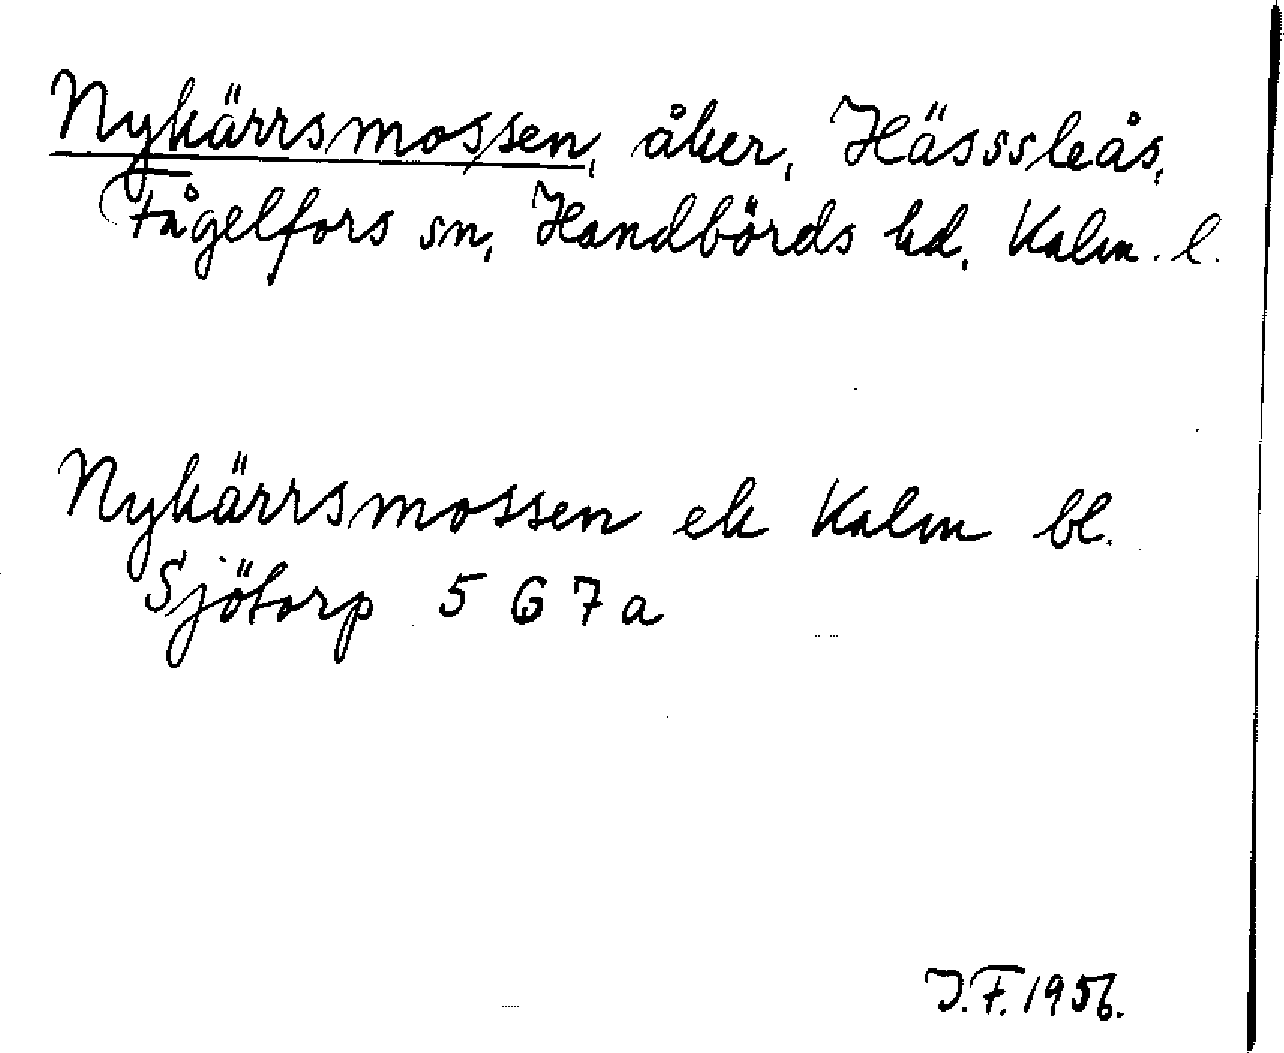 Nykärrsmossen, åker, Hässsleås,
Fågelfors sn, Handbörds hd, Kalm. l.
Nykärrsmossen ek Kalm bl.
Sjötorp 5 G 7 a
J.F. 1956.